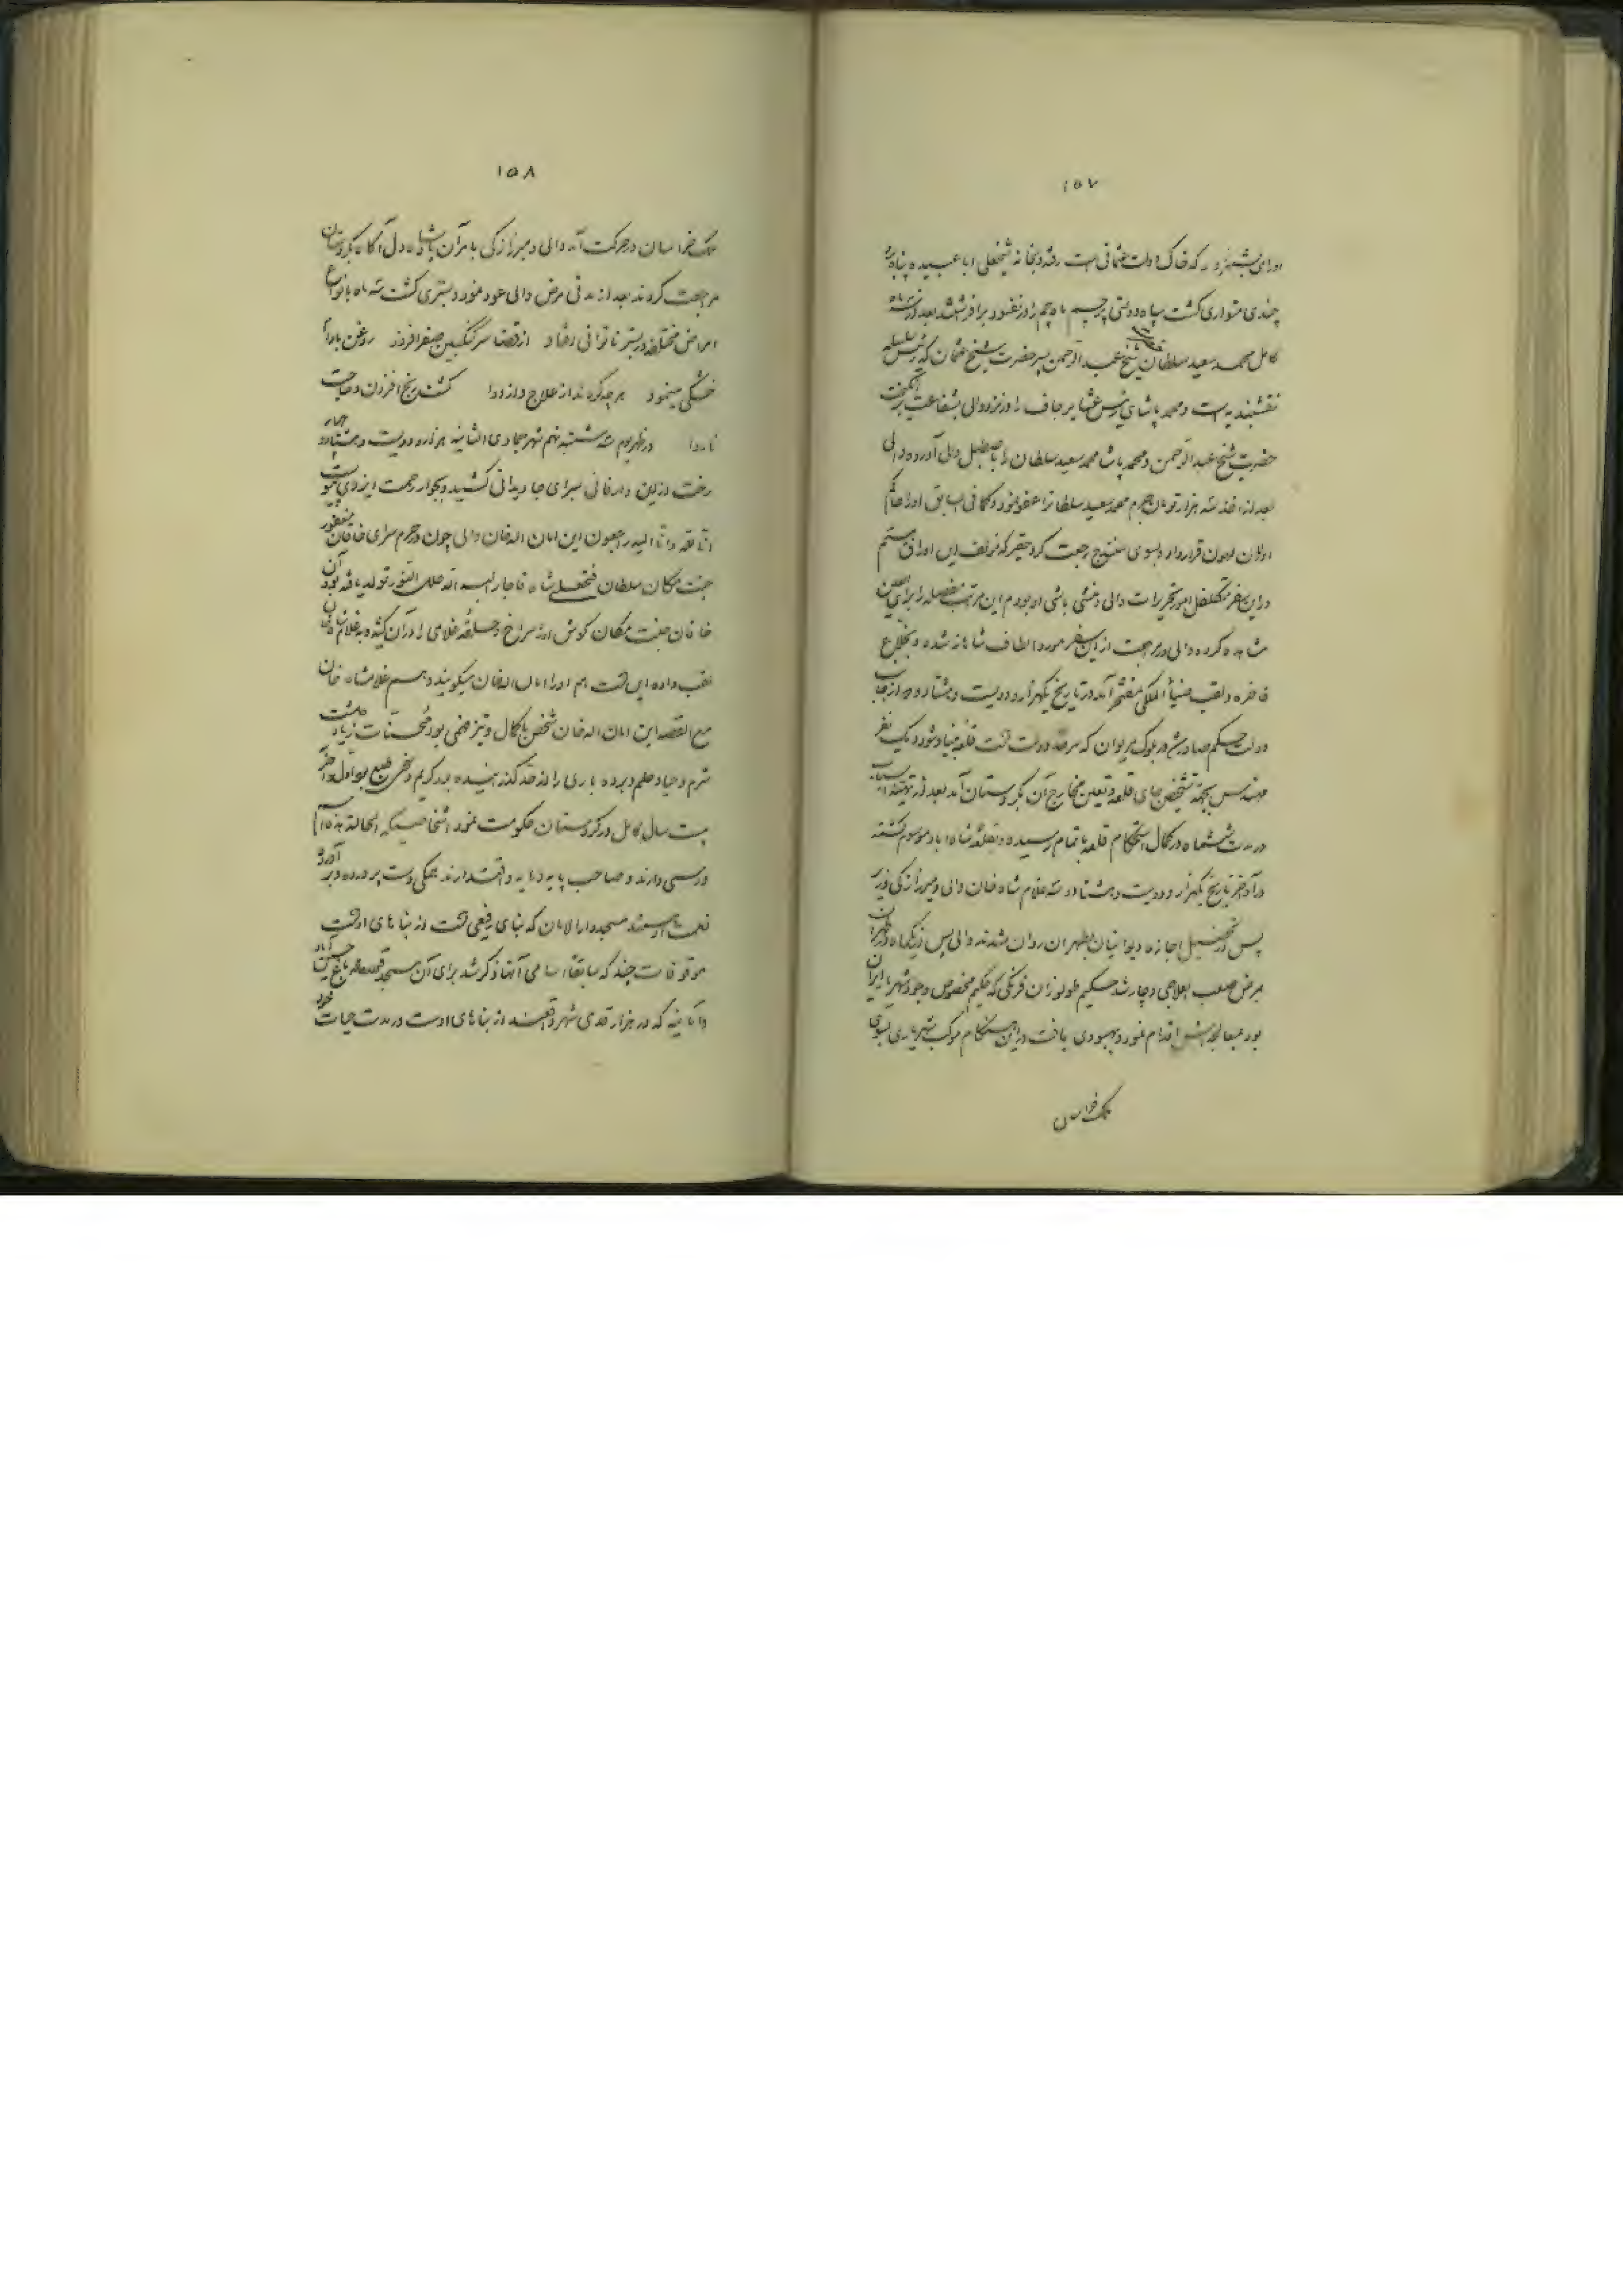 ١٥٧
اورای شهرزور که خاک دولت عثمانی است رفته و بخانه شیخعلی ابا عبیده پناه برد
چندی متواری گشت سپاه دولتی پرچم ماه چم را در نفسود برافراشتند بعد از سه ماه
کامل محمد سعید سلطان شیخ عبدالرحمن پسر حضرت شیخ عثمان که رئیس سلسله
نقشبندیه است و محمد پاشای رئیس عشایر جاف را در نزد والی بشفاعت برانگیخت
حضرت شیخ عبدالرحمن و محمد پاشا محمد سعید سلطان را باصطبل والی آورده والی
بعد از اخذ سه هزار تومان جرم محمد سعید سلطان را عفو نمود و کما فی السابق او را حاکم
اورامان لهون قرار داد و بسوی سنندج رجعت کرد حقیر که مؤلف این اوراق هستم
در این سفر متکفل امور تحریرات والی و منشی باشی او بودم این مراتب مفصله را برای العین
مشاهده کرده والی در مراجعت از این سفر مورد الطاف شاهانه شده و بخلاع
فاخره و لقب ضیاء الملکی مفتخر آمد در تاریخ یکهزار و دویست و هشتاد و دو از جانب
دولت حکم صادر شد در بلوک مریوان که سرحد دولت است قلعه بنیاد شود و یک نفر
مهندس بجهة تشخیص جای قلعه و تعین مخارج آن بکردستان آمد بعد از تهیه اسباب
در مدت ششماه در کمال استحکام قلعه باتمام رسیده و بقلعه شاه اباد موسوم گشته
در آخر تاریخ یکهزار و دویست و هشتاد و سه غلام شاه خان والی و میرزا زکی وزیر
پس از تحصیل اجازه دیوانیان بطهران روان شدند والی پس از یکماه در طهران
بمرض صعب العلاجی دچار شد حکیم طولوزان فرنگی که حکیم مخصوص وجود شهریار ایران
بود بمعالجه‌اش اقدام نمود و بهبودی یافت در این هنگام موکب شهریاری بسوی
ملک خراسان
١٥٨
ملک خراسان در حرکت آمد والی و میرزا زکی بامر آن پادشاه دل آگاه بکردستان
مراجعت کردند بعد از مدتی مرض والی عود نمود و بستری گشت سه ماه بانواع
امراض مختلفه در بستر ناتوانی افتاد از قضا سرکنگبین صفرا فزود روغن بادام
خشکی مینمود هرچه کردند از علاج و از دوا گشت رنج افزون و حاجت
ناروا در ظهر یوم سه شنبه نهم شهر جمادی الثانیه هزار و دویست و هشتاد و چهار
رخت از این دار فانی بسرای جاویدانی کشید و بجوار رحمت ایزدی پیوست
انا لله و انا الیه راجعون این امان الله خان والی چون در حرم سرای خاقان مغفور
جنت مکان سلطان فتحعلی شاه قاجار البسه الله حلل النور تولد یافته بود آن
خاقان جنت مکان گوش او را سوراخ و حلقه غلامی را در آن کشیده و به غلام شاه خان
لقب داده این است هم او را امان الله خان میگویند و هم غلامشاه خان
مع القصه این امان الله خان شخص باکمال و تیز فهمی بود محسنات زیاد داشت
شرم و حیا و حلم و بردباری را از حد گذرانیده بود کریم و سخی طبع بود اول و آخر
بیست سال کامل در کردستان حکومت نمود اشخاصیکه الحالة هذه اسم
و رسمی دارند و صاحب پایه و مایه و اقتدارند همگی دست پرورده و برآورده
نعمت او هستند مسجد دارالامان که بنای رفیعی است از بناهای اوست
موقوفات چند که سابقاً اسامی آنها ذکر شد برای آن مسجد قصبه باغ حسین آباد
و امانیه که در هزار قدمی شهر واقعند از بناهای اوست در مدت حیات خود